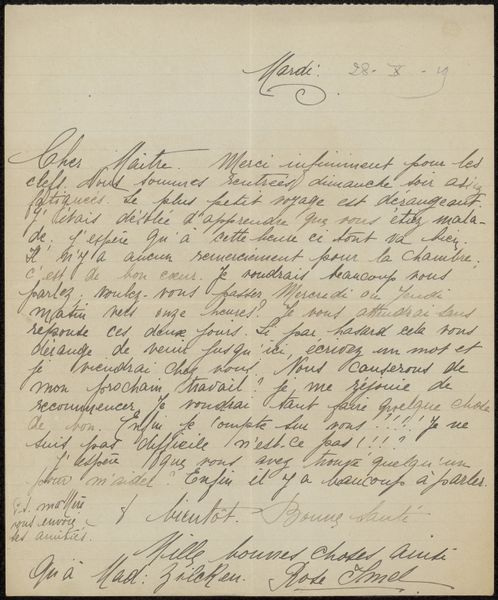 Mardi. 28-X-19
Cher Maître. Merci infiniment pour les
clefs. Nous sommes rentrées dimanche soir assez
fatiguées. Le plus petit voyage est dérangeant.
J'étais désolée d'apprendre que vous étiez mala-
de, j'espère qu'à cette heure ci tout va bien.
Il n'y a aucun remerciement pour la Chambre,
c'est de bon cœur. Je voudrais beaucoup vous
parler, voulez-vous passer, Mercredi ou Jeudi
matin vers onze heures? Je vous attendrai sans
réponse ces deux jours. Si par hasard cela vous
dérange de venir jusqu'ici, écrivez un mot et
je viendrai chez vous. Nous causerons de
mon prochain travail? Je me réjouie de
recommencer. Je voudrai tant faire quelque chose
de bon. Enfin je compte sur vous!!!! Je ne
suis pas difficile n'est-ce pas!!!?
J'espère que vous avez trouvé quelqu'un
pour m'aider? Enfin il y a beaucoup à parler.
à bientôt. Bonne santé
P.S. ma Mère
vous envoie
ses amitiés.
Mille bonnes choses ainsi
qu'à Mad: Zilcken. Rose